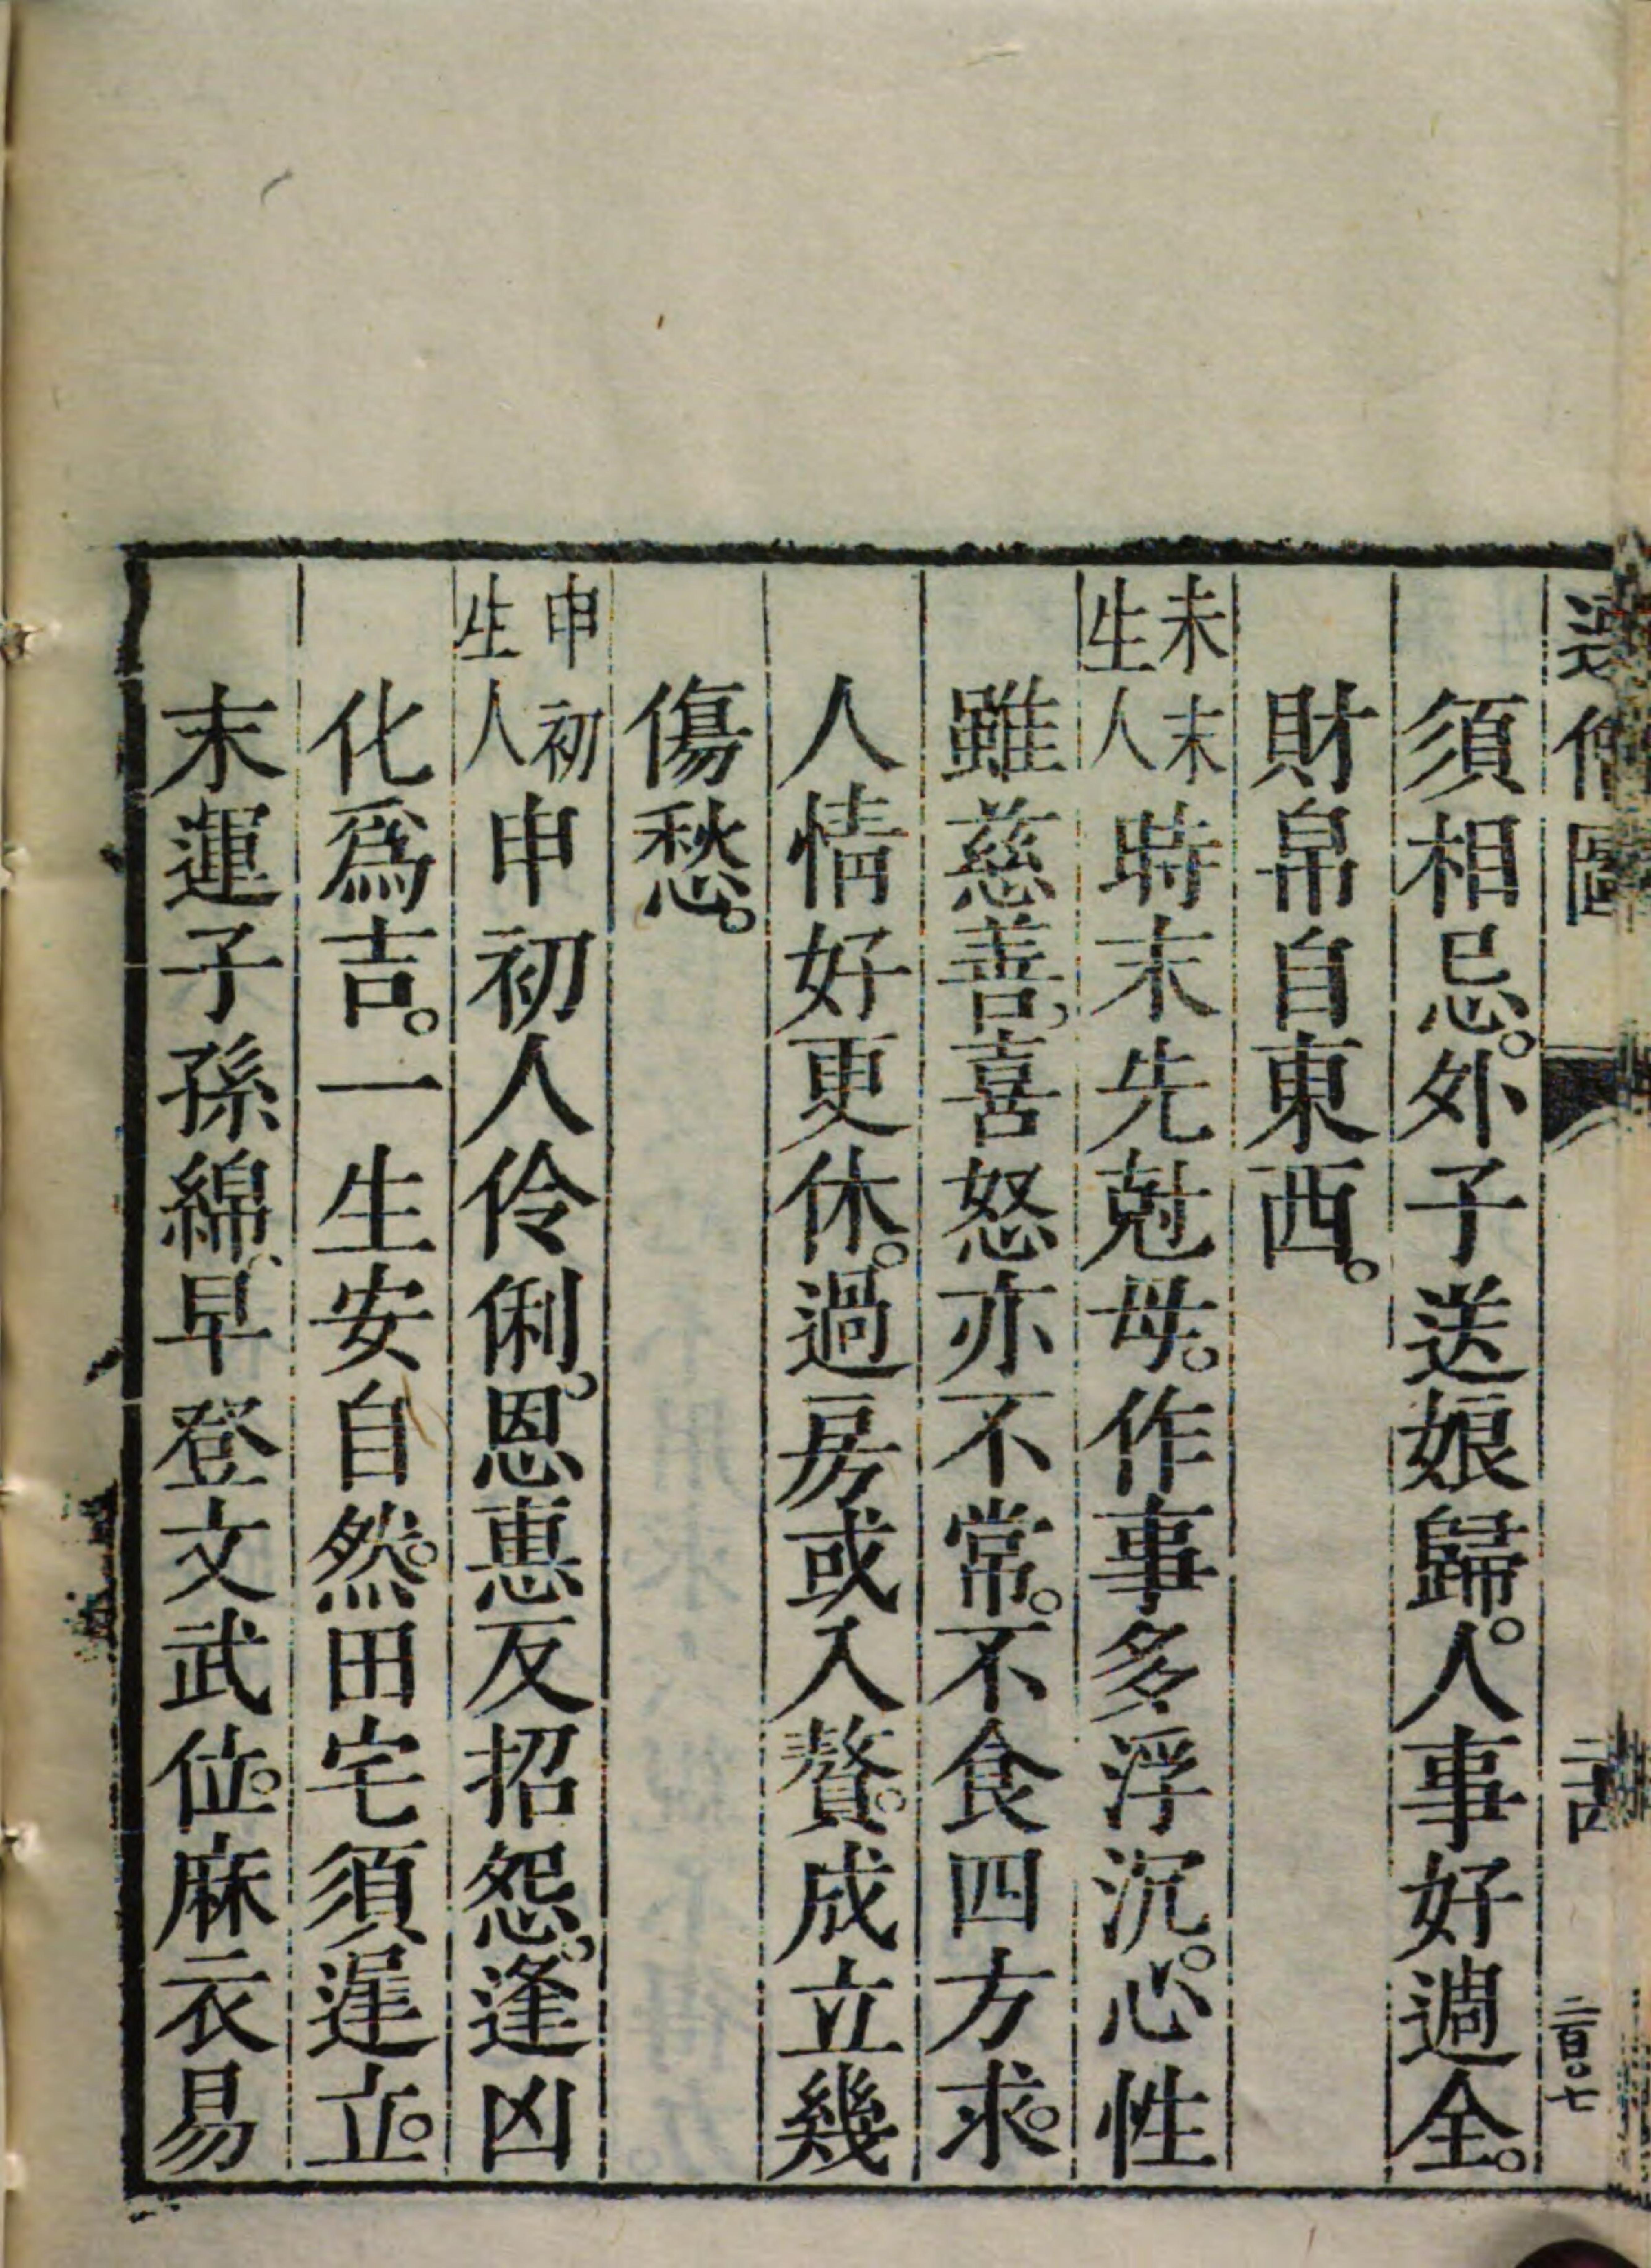 須相忌。外子送娘歸。人事好週全。
財帛自東西。
未末生人 時末先尅母。作事多浮沉。心性
雖慈善、喜怒亦不常。不食四方求。
人情好更休。過房或入贅。成立幾
傷愁。
申初生人 申初人伶俐。恩惠反招怨。逢凶
化爲吉。一生安自然。田宅須遲立。
末運子孫綿、早登文武位。麻衣易
二百〇七